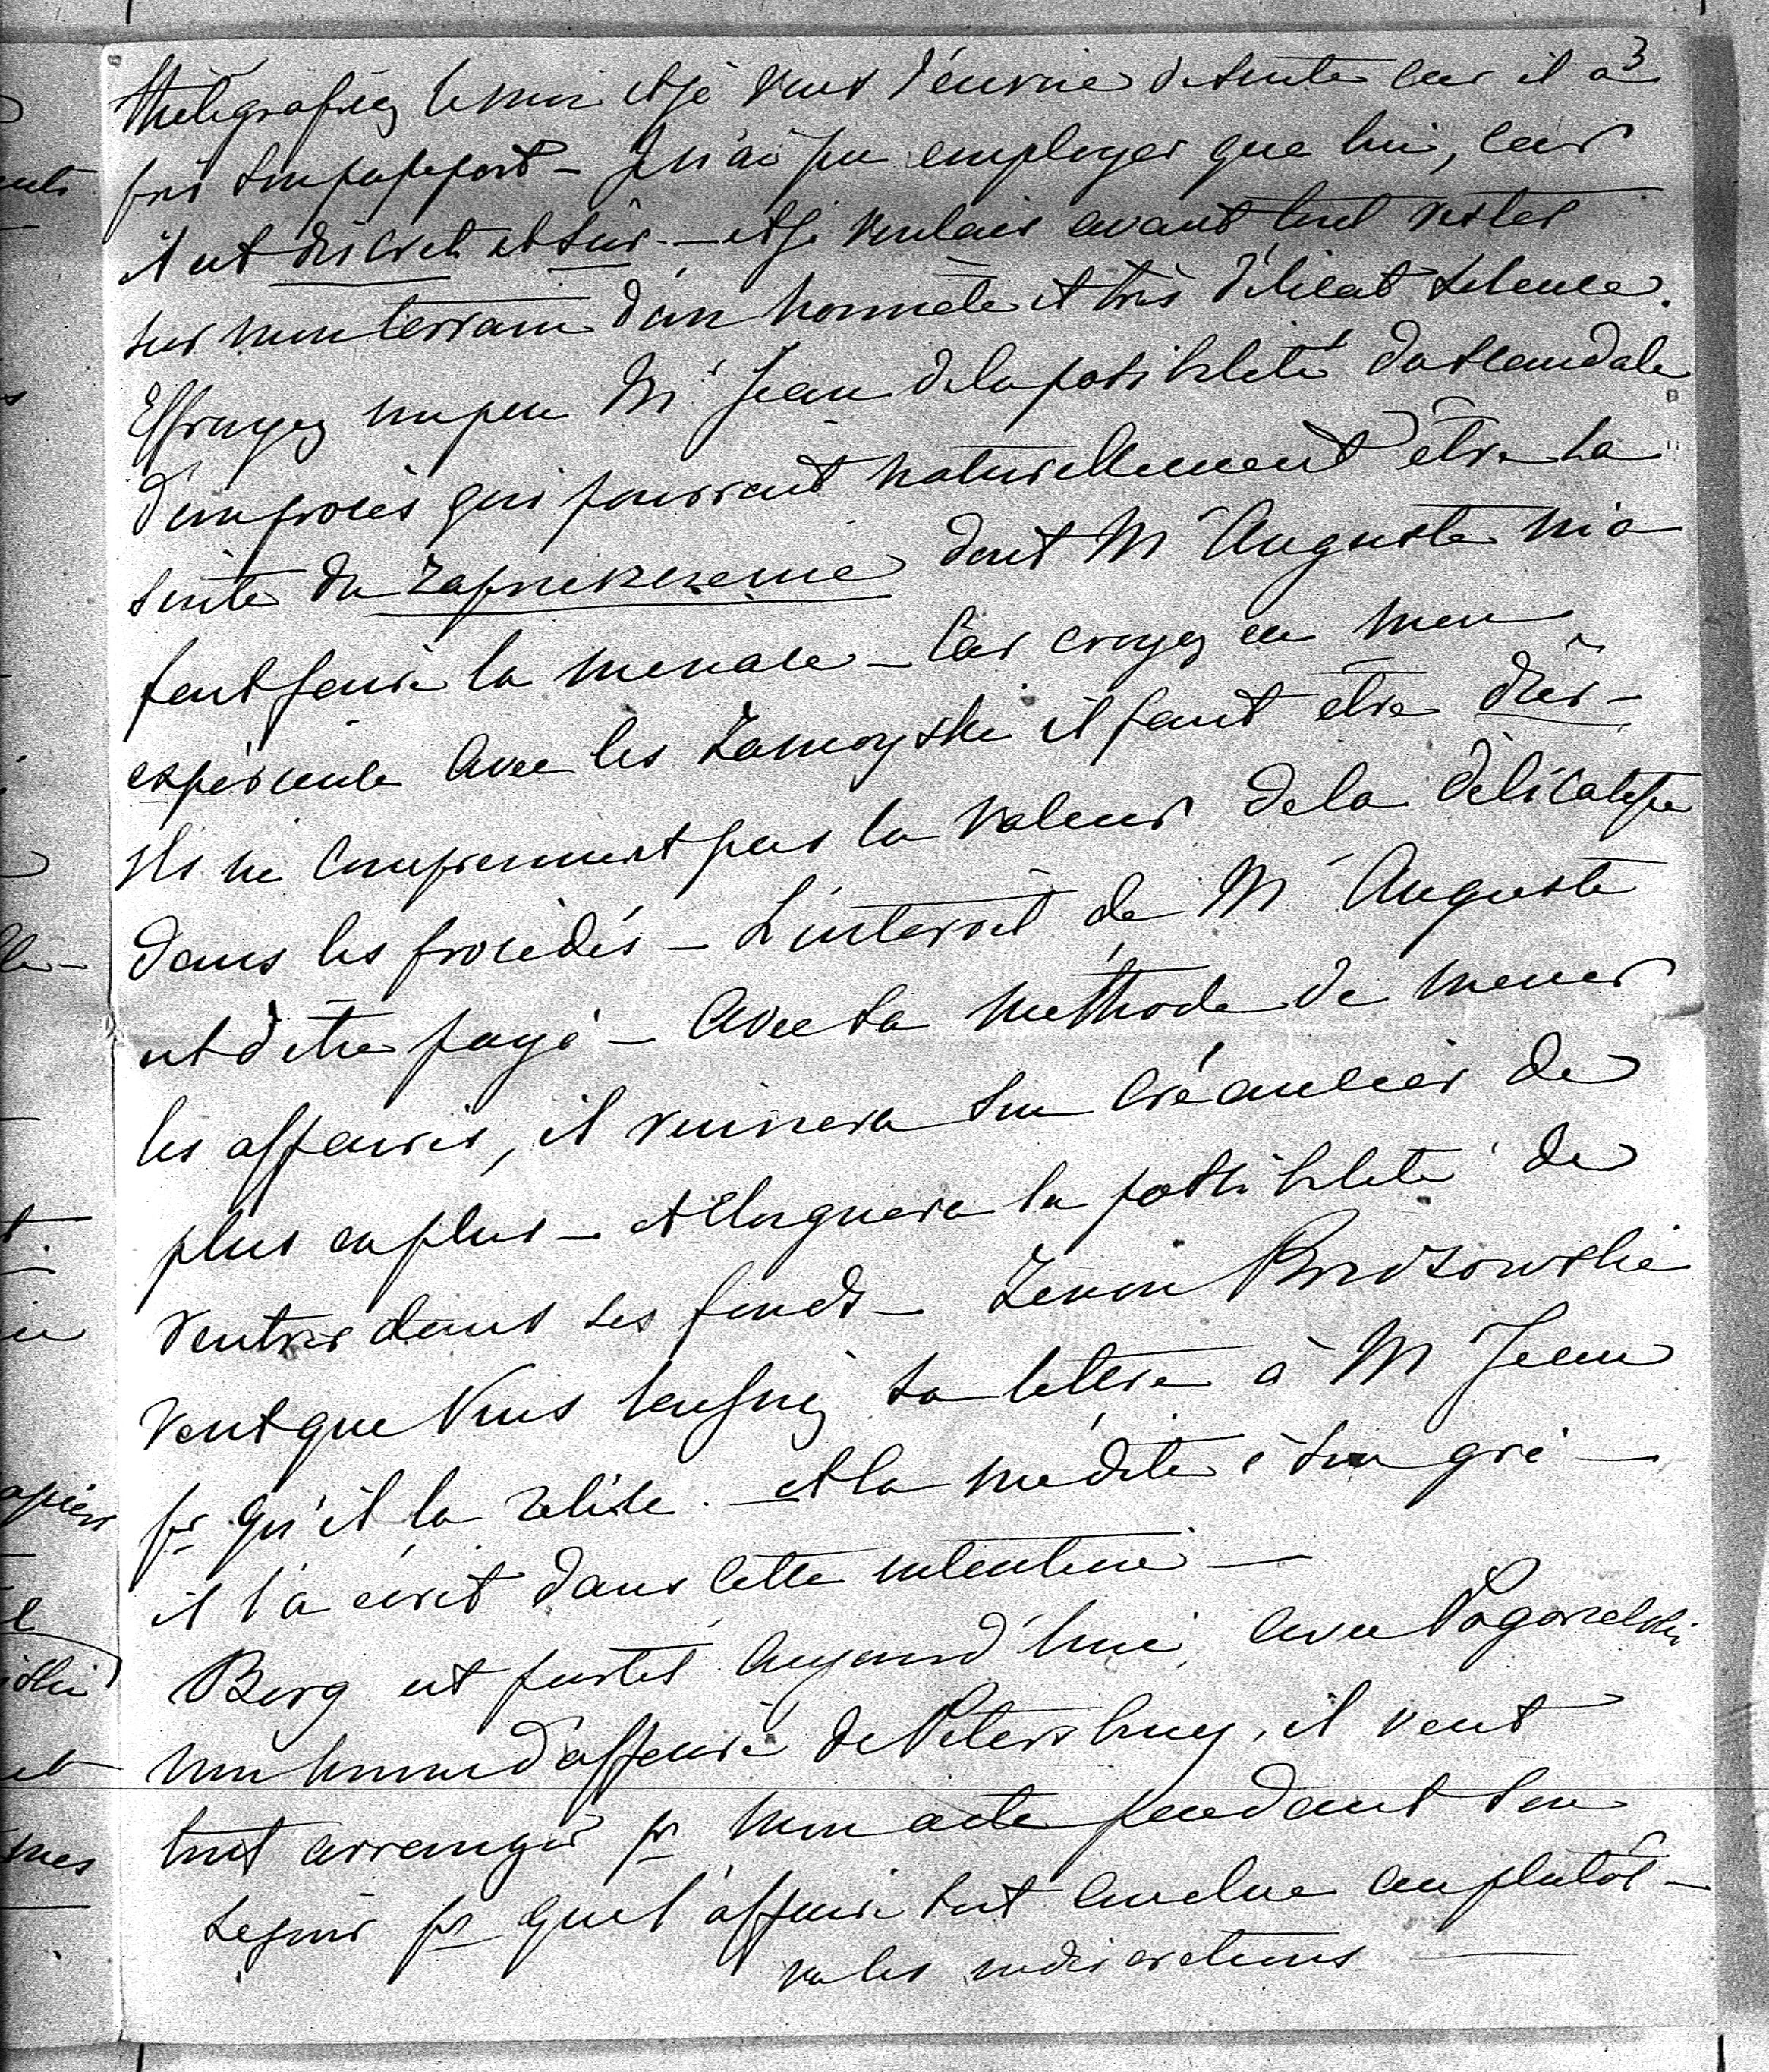 3
théligrafiez le moi et je vous l'envoie desuite car il a
pris son passeport – Je n'ai pu employer que lui, car
il est discret et sûr. – et je voulais avant tout rester
sur mon terrain d'un honnête et très délicat silence.
Effrayez un peu Mr Jean de la posibileté du scandale
d'un procès qui pourrait naturellement être la
suite du zapreszczenie dont Mr Auguste m'a
fait faire la menace – Car croyez en mon
expérience avec les Zamoyski il faut être dur –
Ils ne comprennent pas la valeur de la délicatesse
dans les procédés – L'interoit de Mr Auguste
est d'être payé – Avec sa methode de mener
les affaires, il ruinera son créancier de
plus en plus – et éloignera la possibileté de
rentrer dans ses fonds – Zenon Brzozowski
veut que Vous laissiez sa lettre à Mr Jean
pr qu'il la relise. – et la medite à son gré –
il l'a écrit dans cette intention –
Berg est partit aujourd'hui, avec Pogorzelski
mon homme d'affaire de Petersburg, il veut
tout arranger pr mon acte pendant son
sejour pr que l'affaire soit conclue au plutôt –
vu les indiscretions –